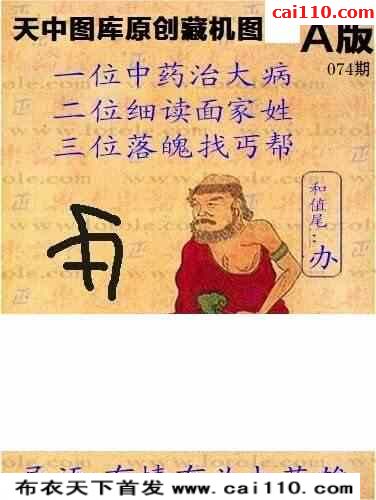 cai110.com
天中图库原创藏机图 A版
074期
一位中药治大病
二位细读面家姓
三位落魄找丐帮
和值尾：办
布衣天下首发 www.cai110.com